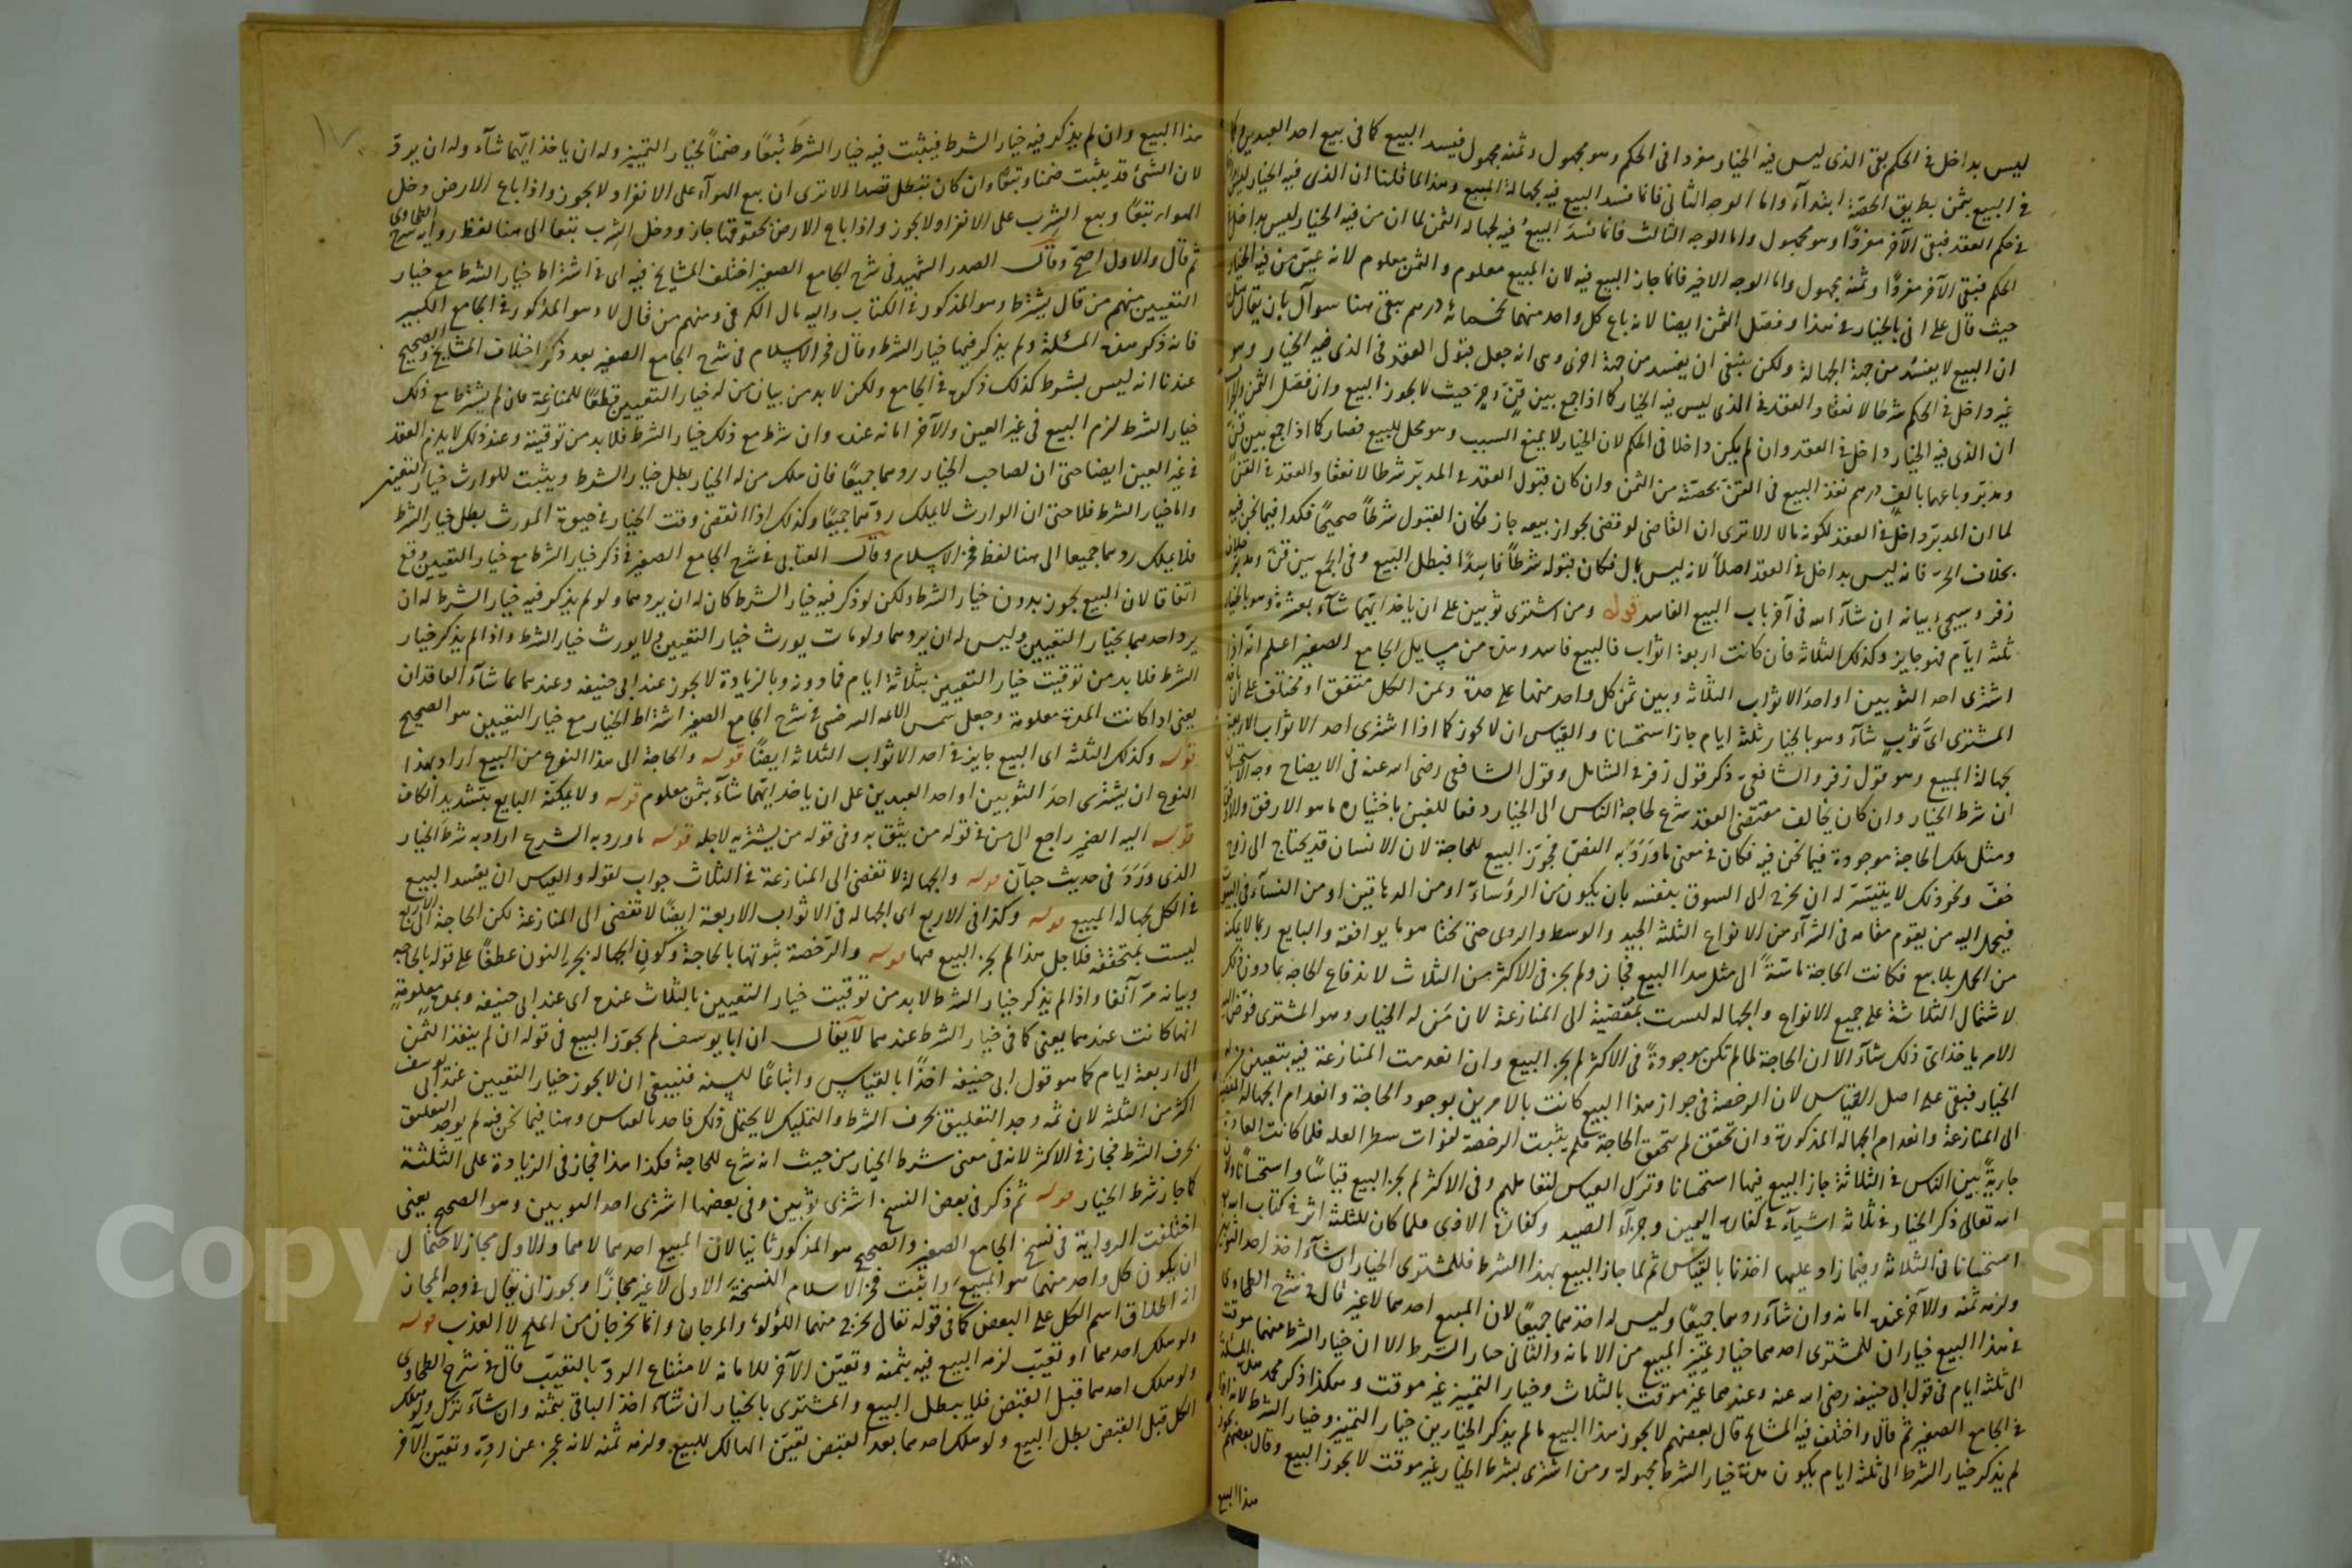 ليس بداخل في الحكم بقي الذي ليس فيه الخيار مفردا في الحكم وهو مجهول وثمنه مجهول فيفسد البيع كما في بيع احد العبدين
في البيع بثمن بطريق الحصة ابتدآء واما الوجه الثاني فانما فسد البيع فيه بجهالة المبيع وهذا لما قلنا ان الذي فيه الخيار ليس
في حكم العقد فبقي الآخر مفردًا وهو مجهول واما الوجه الثالث فانما فسد البيع فيه لجهالة الثمن لما ان من فيه الخيار ليس بداخل
الحكم فبقي الآخر مفردًا وثمنه مجهول واما الوجه الاخير فانما جاز البيع فيه لان المبيع معلوم والثمن معلوم لانه عيّن من فيه الخيار
حيث قال على اني بالخيار في هذا وفصل الثمن ايضا لانه باع كل واحد منهما بخمسمائة درهم بقي هنا سوآل بان يقال
ان البيع لا يفسد من جهة الجهالة ولكن ينبغي ان يفسد من جهة اخرى وهي انه جعل قبول العقد في الذي فيه الخيار وهو
غير داخل في الحكم شرطا لانعقاد العقد في الذي ليس فيه الخيار كما اذا جمع بين قنّ وحرّ حيث لا يجوز البيع وان فصل الثمن
ان الذي فيه الخيار داخل في العقد وان لم يكن داخلا في الحكم لان الخيار لا يمنع السبب وهو محل للبيع فصار كما اذا جمع بين قنّ
ومدبّر وباعهما بالف درهم نفذ البيع في القنّ بحصّته من الثمن وان كان قبول العقد في المدبّر شرطا لانعقاد العقد في القنّ
لما ان المدبّر داخل في العقد لكونه مالا الا ترى ان القاضي لو قضى بجواز بيعه جاز فكان القبول شرطاً صحيحًا فكذا فيما نحن فيه
بخلاف الحرّ فانه ليس بداخل في العقد اصلاً لانه ليس بمال فكان قبوله شرطاً فاسِدًا فيبطل البيع وفي الجمع بين قنّ ومدبّر خلاف
زفر وسيجيء بيانه ان شآء الله في آخر باب البيع الفاسد قوله ومن اشترى ثوبين على ان ياخذ ايّهما شآء بعشرة وهو بالخيار
ثلثة ايّام فهو جايز وكذلك الثلاثة فان كانت اربعة اثواب فالبيع فاسد وهذه من مسايل الجامع الصغير اعلم انه اذا
اشترى احد الثوبين او احدَ الاثواب الثلاثة وبين ثمن كل واحد منها على حدة وثمن الكل متفق او مختلف على ان ياخذ
المشتري ايّ ثوبٍ شآء وهو بالخيار ثلثة ايام جاز استحسانا والقياس ان لا يجوز كما اذا اشترى احد الاثواب الاربعة
بجهالة المبيع وهو قول زفر والشافعيّ ذكر قول زفر في الشامل وقول الشافعي رضي الله عنه في الايضاح وجه الاستحسان
ان شرط الخيار وان كان يخالف مقتضى العقد شرع لحاجة الناس الى الخيار دفعا للغبن باختياره ما هو الارفق والاوفق
ومثل تلك الحاجة موجودة فيما نحن فيه فكان في معنى ما وَرَدَ به النصّ فجوّز البيع للحاجة لان الانسان قد يحتاج الى زوج
خفّ ونحو ذلك لا يتيسّر له ان يخرج الى السوق بنفسه بان يكون من الرؤساء او من الدهاقين او من النسآء في البيوت
فيحمل اليه من يقوم مقامه في الشرآء من الانواع الثلثة الجيد والوسط والردى حتى يختار هو ما يوافقه والبايع ربما لا يمكنه
من الحمل بلا بيع فكانت الحاجة ماسّةً الى مثل هذا البيع فجاز ولم يجز في الاكثر من الثلاث لاندفاع الحاجة بما دون ذلك
لاشتمال الثلاثة على جميع الانواع والجهالة ليست بمُفضية الى المنازعة لان مَن له الخيار وهو المشتري فوّض اليه
الامر ياخذ ايّ ذلك شآء الا ان الحاجة لما لم تكن موجودةً في الاكثر لم يجز البيع وان انعدمت المنازعة فيه بتعيين من له
الخيار فبقي على اصل القياس لان الرخصة في جواز هذا البيع كانت بالامرين بوجود الحاجة وانعدام الجهالة المفضية
الى المنازعة وانعدام الجهالة المذكورة وان تحقق لم يتحقق الحاجة فلم يثبت الرخصة لفوات شطر العلة فلما كانت العادة
جاريةً بين الناس في الثلاثة جاز البيع فيها استحسانا وترك القياس لتعاملهم وفي الاكثر لم يجز البيع قياسًا واستحسانًا ولان
الله تعالى ذكر الخيار في ثلاثة اشيآء في كفارة اليمين وجزآء الصيد وكفارة الاذى فلما كان للثلثة اثر في كتاب الله
استحسانا في الثلاثة وفيما زاد عليها اخذنا بالقياس ثم لما جاز البيع بهذا الشرط فللمشتري الخيار ان شآء اخذ احد الثوبين
ولزمه ثمنه والآخر عنده امانة وان شآء ردهما جميعًا وليس له اخذهما جميعًا لان المبيع احدهما لا غير قال في شرح الطحاوي
في هذا البيع خياران للمشتري احدهما خيار تمييز المبيع من الامانة والثاني خيار الشرط الا ان خيار الشرط منهما موقت
الى ثلثة ايام في قول ابي حنيفة رضي الله عنه وعندهما غير موقت بالثلاث وخيار التمييز غير موقت وهكذا ذكر محمد هذه المسئلة
في الجامع الصغير ثم قال واختلف فيه المشايخ قال بعضهم لا يجوز هذا البيع ما لم يذكر الخيارين خيار التمييز وخيار الشرط لانه اذا
لم يذكر خيار الشرط الى ثلثة ايام يكون مدة خيار الشرط مجهولة ومن اشترى بشرط الخيار غير موقت لا يجوز البيع وقال بعضهم يجوز
هذا البيع
هذا البيع وان لم يذكر فيه خيار الشرط فيثبت فيه خيار الشرط تَبعًا وضمناً لخيار التمييز وله ان ياخذ ايّهما شآء وله ان يردّ
لان الشئ قد يثبت ضمنا وتبعًا وان كان تبطل قصدا الا ترى ان بيع الهوآء على الانفراد لا يجوز واذا باع الارض دخل
الهوآء تبعًا وبيع الشِرب على الانفراد لا يجوز واذا باع الارض بحقوقها جاز ودخل الشِرب تبعا الى هنا لفظ رواية شرح الطحاوي
ثم قال والاول اصحّ وقال الصدر الشهيد في شرح الجامع الصغير اختلف المشايخ فيه اي في اشتراط خيار الشرط مع خيار
التعيين منهم من قال يشترط وهو المذكور في الكتاب واليه مال الكرخي ومنهم من قال لا وهو المذكور في الجامع الكبير
فانه ذكر هذه المسئلة ولم يذكر فيها خيار الشرط وقال فخر الاسلام في شرح الجامع الصغير بعد ذكر اختلاف المشايخ والصحيح
عندنا انه ليس بشرط كذلك ذكره في الجامع ولكن لا بد من بيان من له خيار التعيين قطعًا للمنازعة فان لم يشترط مع ذلك
خيار الشرط لزم البيع في غير العين والآخر امانه عنده وان شرط مع ذلك خيار الشرط فلا بد من توقيته وعند ذلك لا يلزم العقد
في غير العين ايضا حتى ان لصاحب الخيار ردهما جميعًا فان هلك من له الخيار بطل خيار الشرط ويثبت للوارث خيار التعيين
واما خيار الشرط فلا حتى ان الوارث لا يملك ردّهما جميعًا وكذلك اذا انقضى وقت الخيار في حيوة المورث بطل خيار الشرط
فلا يملك ردهما جميعا الى هنا لفظ فخر الاسلام وقال العتابي في شرح الجامع الصغير في ذكر خيار الشرط مع خيار التعيين وقع
اتفاقا لان البيع يجوز بدون خيار الشرط ولكن لو ذكر فيه خيار الشرط كان له ان يردهما ولو لم يذكر فيه خيار الشرط له ان
يرد احدهما بخيار التعيين وليس له ان يردهما ولو مات يورث خيار التعيين ولا يورث خيار الشرط واذا لم يذكر خيار
الشرط فلا بد من توقيت خيار التعيين بثلاثة ايام فما دونه وبالزيادة لا يجوز عند ابي حنيفة وعندهما بما شآء العاقدان
يعني اذا كانت المدة معلومة وجعل شمس الائمة السرخسي في شرح الجامع الصغير اشتراط الخيار مع خيار التعيين هو الصحيح
قوله وكذلك الثلثة اي البيع جايز في احد الاثواب الثلاثة ايضًا قوله والحاجة الى هذا النوع من البيع اراد بهذا
النوع ان يشترى احدَ الثوبين او احد العبدين على ان ياخذ ايّهما شآء بثمن معلوم قوله ولا يمكنه البايع بتشديد الكاف
قوله اليه الضمير راجع الى من في قوله من يثق به وفي قوله من يشتريه لاجله قوله ما ورد به الشرع اراد به شرط الخيار
الذي وَرَدَ في حديث حبان قوله والجهالة لا تفضى الى المنازعة في الثلاث جواب لقوله والقياس ان يفسد البيع
في الكل لجهالة المبيع قوله وكذا في الاربع اي الجهالة في الاثواب الاربعة ايضًا لا تفضى الى المنازعة لكن الحاجة الى الاربع
ليست بمتحققة فلاجل هذا لم يجز البيع فيها قوله والرخصة ثبوتها بالحاجة وكونِ الجهالة بجر النون عطفًا على قوله بالحاجة
وبيانه مرّ آنفا واذا لم يذكر خيار الشرط لا بد من توقيت خيار التعيين بالثلاث عنده اي عند ابي حنيفة وبمدة معلومةٍ
ايّها كانت عندهما يعني كما في خيار الشرط عندهما لا يقال ان ابا يوسف لم يجوّز البيع في قوله ان لم ينقد الثمن
الى اربعة ايام كما هو قول ابي حنيفة اخذًا بالقياس واتباعًا للسنة فينبغي ان لا يجوز خيار التعيين عند ابي يوسف
اكثر من الثلثة لان ثمه وجد التعليق بحرف الشرط والتمليك لا يحتمل ذلك فاخذ بالقياس وهنا فيما نحن فيه لم يوجد التعليق
بحرف الشرط فجاز في الاكثر لانه في معنى شرط الخيار من حيث انه شرع للحاجة فكذا هذا فجاز في الزيادة على الثلثة
كما جاز شرط الخيار قوله ثم ذكر في بعض النسخ اشترى ثوبين وفي بعضها اشترى احد الثوبين وهو الصحيح يعني
اختلفت الرواية في نسخ الجامع الصغير والصحيح هو المذكور ثانيا لان المبيع احدهما لا هما والاول مجاز لاحتمال
ان يكون كل واحد منهما هو المبيعَ واثبت فخر الاسلام النسخة الاولى لا غير مجازًا ويجوز ان يقال في وجه المجاز
انه اطلاق اسم الكل على البعض كما في قوله تعالى يخرج منهما اللؤلؤ والمرجان وانما يخرجان من الملح لا العذب قوله
ولو هلك احدهما او تعيّب لزمه البيع فيه بثمنه وتعيّن الآخر للامانة لامتناع الردّ بالتعيّب قال في شرح الطحاوي
ولو هلك احدهما قبل القبض فلا يبطل البيع والمشتري بالخيار ان شآء اخذ الباقي بثمنه وان شآء ترك ولو هلك
الكل قبل القبض بطل البيع ولو هلك احدهما بعد القبض تعيّن الهالك للبيع ولزمه ثمنه لانه عجز عن ردّه وتعيّن الآخر
Copy University